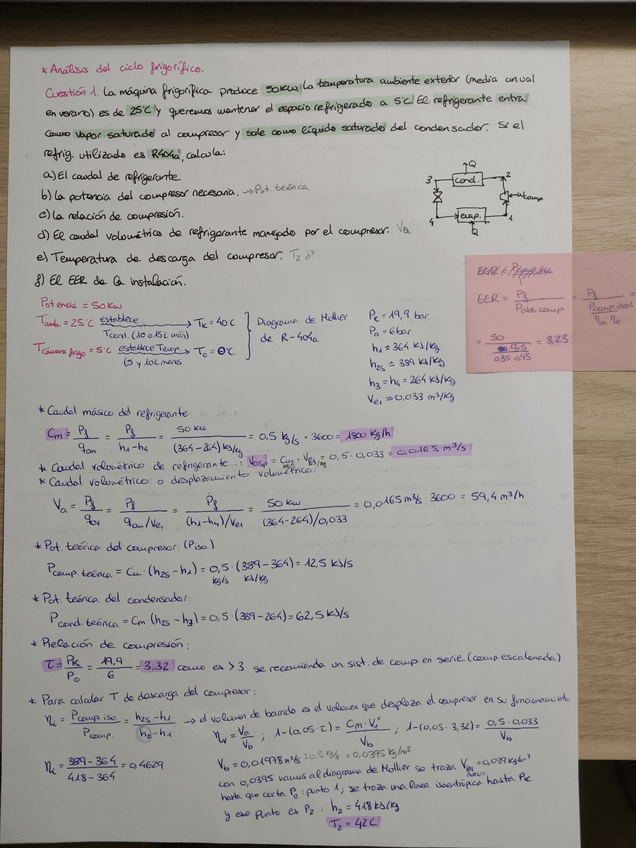 * Análisis del ciclo frigorífico.
Cuestión 1. La máquina frigorífica produce 50 kw. La temperatura ambiente exterior (media anual
en verano) es de 25°C y queremos mantener el espacio refrigerado a 5°C. El refrigerante entra
como vapor saturado al compresor y sale como líquido saturado del condensador. Si el
refrig. utilizado es R404a, calcula:
a) El caudal de refrigerante.
b) la potencia del compresor necesaria. → Pot. teórica
c) la relación de compresión.
d) El caudal volumétrico de refrigerante manejado por el compresor. Va
e) Temperatura de descarga del compresor. T2 ?
f) El EER de la instalación.
Q
3 Cond. 2
Wcomp
4 evap. 1
Q
EER = Pf / Pabs comp = Pf / (Pcomp.ideal / ηm ηe) =
= 50 / (12,5 / 0,85 0,95) = 3,23
Potencia = 50 kw
Tamb. = 25°C establece → Tk = 40C
Tcond. (10 o 15C más)
Tcámara frigo = 5°C establece Tevap → To = 0°C
(5 y 10C menos
Diagrama de Mollier
de R-404a
Pk = 19,9 bar.
Po = 6 bar
h1 = 364 KJ/Kg
h2s = 389 KJ/Kg
h3 = h4 = 264 KJ/Kg
Ve1 = 0,033 m³/Kg
* Caudal másico del refrigerante
Cm = Pf / qom = Pf / h1-h4 = 50 kw / (364-264) KJ/Kg = 0,5 kg/s · 3600 = 1800 Kg/h
* Caudal volumétrico de refrigerante...: Vasp = Cm · Ve1 = 0,5 · 0,033 = 0,0165 m³/s
* Caudal volumétrico o desplazamiento volumétrico:
Va = Pf / qov = Pf / qom/Ve1 = Pf / (h1-h4)/Ve1 = 50 kw / (364-264)/0,033 = 0,0165 m³/s · 3600 = 59,4 m³/h
* Pot. teórica del compresor: (Piso.)
Pcomp. teórica = Cm · (h2s - h1) = 0,5 · (389-364) = 12,5 KJ/s
kg/s KJ/kg
* Pot. teórica del condensador:
Pcond. teórica = Cm (h2s - h3) = 0,5 · (389-264) = 62,5 KJ/s
* Relación de compresión:
τ = Pk / Po = 19,9 / 6 = 3,32 como es > 3 se recomienda un sist. de comp en serie (comp escalonada)
* Para calcular T de descarga del compresor:
ηi = Pcomp iso / Pcomp. = h2s - h1 / h2 - h1 → el volumen de barrido es el volumen que desplaza el compresor en su funcionamiento
ηv = Va / Vb ; 1-(0,05·τ) = Cm · Ve / Vb ; 1-(0,05·3,32) = 0,5·0,033 / Vb
ηi = 389-364 / 418-364 = 0,4629
Vb = 0,01978 m³/s : 0,5 = 0,0395 Kg/m³
con 0,0395 vamos al diagrama de Mollier se traza
hasta que corta Po: punto 1; se traza una línea isentrópica hasta Pk
y ese punto es P2: h2 = 418 KJ/Kg
T2 = 42C